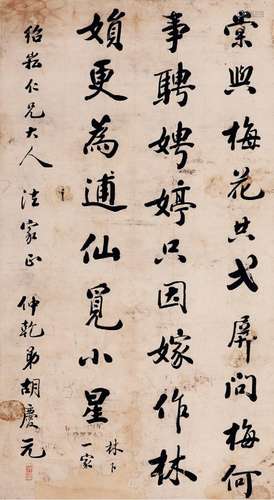 棠與梅花共弌屏問梅何
事聘娉婷只因嫁作林
媍更為逋仙覓小星
林下
一家
紹崧仁兄大人法家正 仲乾弟胡慶元